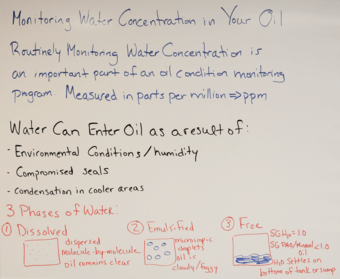 Monitoring Water Concentration in Your Oil
Routinely Monitoring Water Concentration is
an important part of an oil condition monitoring
program. Measured in parts per million ⇒ ppm
Water Can Enter Oil as a result of:
- Environmental Conditions/humidity
- Compromised seals
- Condensation in cooler areas
3 Phases of Water:
① Dissolved
dispersed
molecule-by-molecule
oil remains clear
② Emulsified
microscopic
droplets
oil is
cloudy/foggy
③ Free
SG H2O = 1.0
SG PAO/Mineral < 1.0
H2O Settles on
bottom of tank or sump